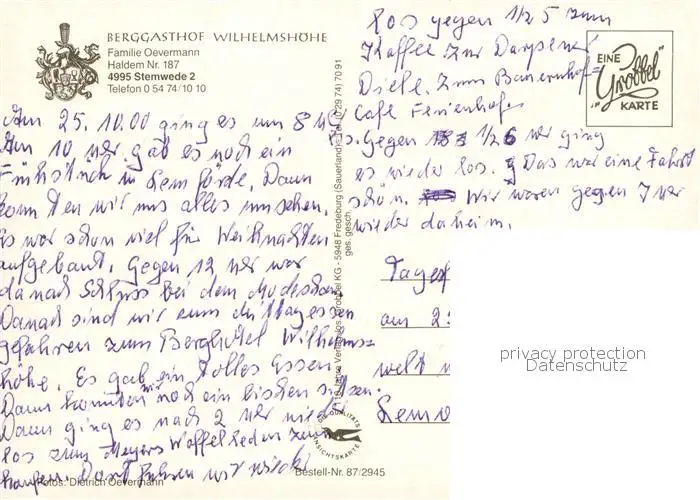 BERGGASTHOF WILHELMSHÖHE
Familie Oevermann
Haldem Nr. 187
4995 Stemwede 2
Telefon 0 54 74/10 10
Am 25. 10.00 ging es um 8 Uhr los.
Um 10 Uer gab es noch ein
Frühstück in Lemförde. Dann
konnten wir uns alles ansehen.
Es war schon viel für Weihnachten
aufgebaut. Gegen 12 Uer war
danach Schluss bei dem Modeschau
Danach sind wir zum Mittagessen
gefahren zum Berghotel Wilhelms=
höhe. Es gab ein tolles Essen.
Dann konnten wir noch ein bischen sitzen.
Dann ging es nach 2 Uer wieder
los zum Meyers Waffelleden zum
kaufen. Dort fuhren wir wieder
los gegen 1/2 5 zum
Kaffee zur Darpener
Diele. Zum Bauernhof=
Cafe Ferienhof.
Gegen 1/2 6 Uer ging
es wieder los. Das war eine Fahrt
schön. Wir waren gegen 7 Uer
wieder daheim.
EINE
"Grobbel"
KARTE
Grobbel KG - 5948 Fredeburg (Sauerland) Tel. (0 29 74) 70 91
ges. gesch.
Tages
am 2
welt
Lem
privacy protection
Datenschutz
QUALITÄTS
ANSICHTSKARTE
Fotos: Dietrich Oevermann
Bestell-Nr. 87/2945